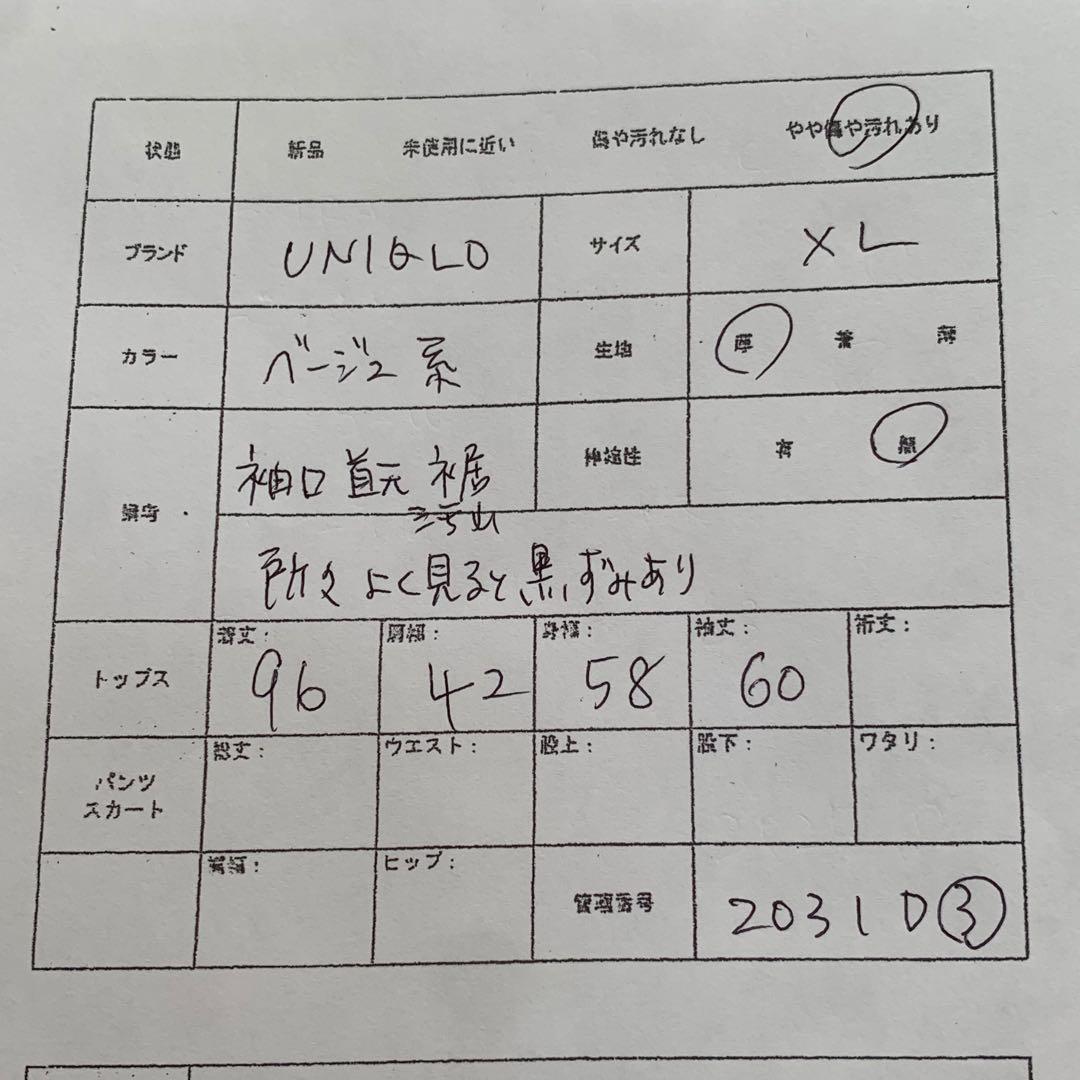 状態 新品 未使用に近い 傷や汚れなし やや傷や汚れあり
ブランド UNIQLO サイズ XL
カラー ベージュ系 生地 厚 普 薄
備考 袖口 首元 裾 伸縮性 有 無
汚れ
所々よく見ると黒ずみあり
トップス 着丈: 96 肩幅: 42 身幅: 58 袖丈: 60 裄丈:
パンツ 総丈: ウエスト: 股上: 股下: ワタリ:
スカート
裾幅: ヒップ: 管理番号 2031D③